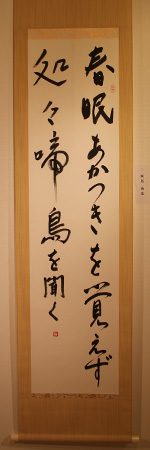 春眠あかつきを覚えず
処々啼鳥を聞く